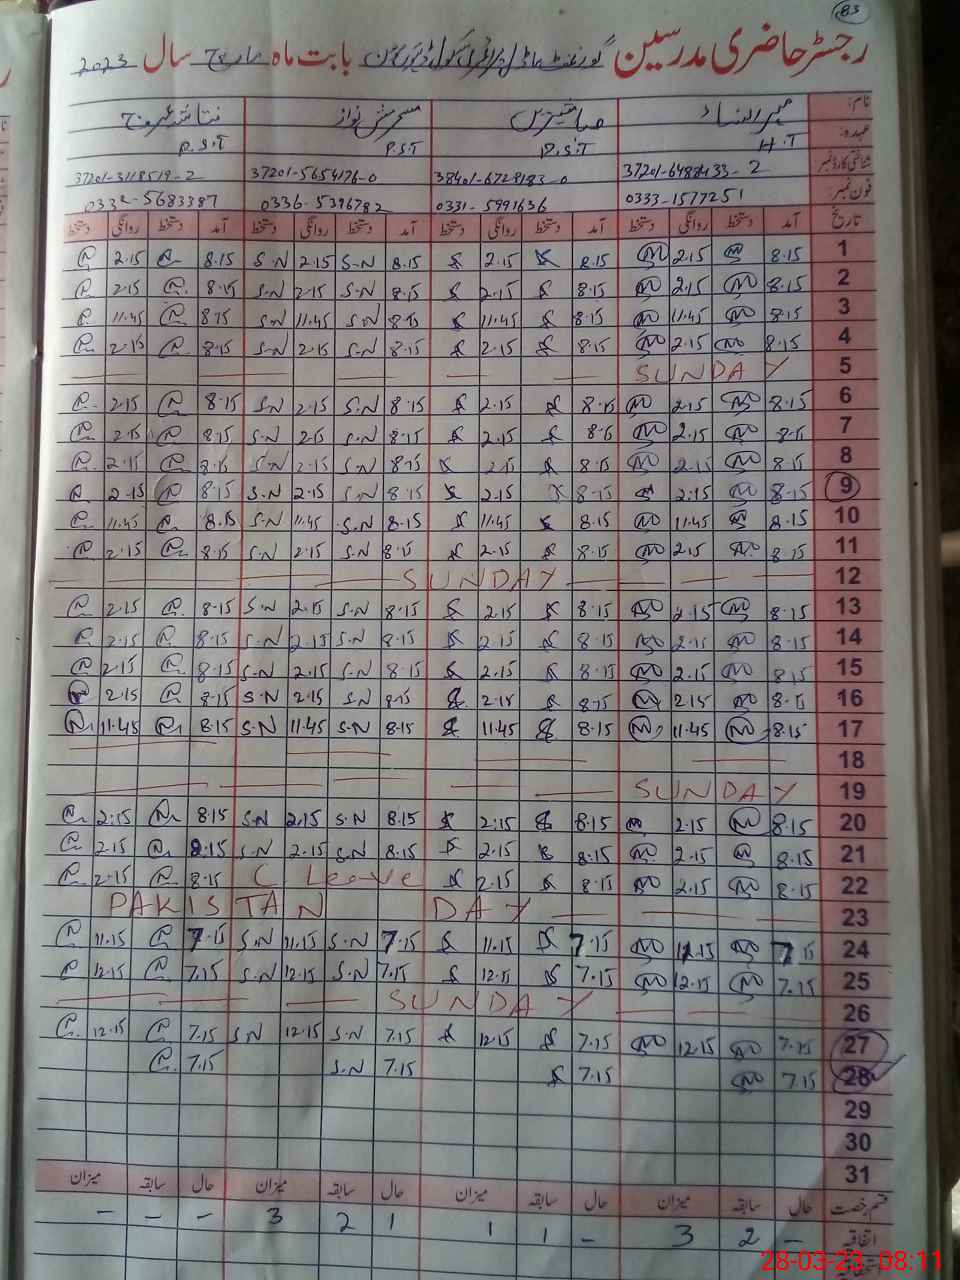 83
رجسٹر حاضری مدرسین گورنمنٹ ماڈل پرائمری سکول بابت ماہ مارچ سال 2023
نام:
عہدہ: H.T P.S.T P.S.T P.S.T
شناختی کارڈ نمبر 37201-6488433-2 38401-6729183-0 37201-5654176-0 37201-3118519-2
فون نمبر: 0333-1577251 0331-5991636 0336-5396782 0332-5683387
تاریخ آمد دستخط روانگی دستخط آمد دستخط روانگی دستخط آمد دستخط روانگی دستخط آمد دستخط روانگی دستخط
1 8.15 2.15 8.15 2.15 8.15 S.N 2.15 S.N 8.15 2.15
2 8.15 2.15 8.15 2.15 8.15 S.N 2.15 S.N 8.15 2.15
3 8.15 11.45 8.15 11.45 8.15 S.N 11.45 S.N 8.15 11.45
4 8.15 2.15 8.15 2.15 8.15 S.N 2.15 S.N 8.15 2.15
5 SUNDAY
6 8.15 2.15 8.15 2.15 8.15 S.N 2.15 S.N 8.15 2.15
7 8.15 2.15 8.15 2.15 8.15 S.N 2.15 S.N 8.15 2.15
8 8.15 2.15 8.15 2.15 8.15 S.N 2.15 S.N 8.15 2.15
9 8.15 2.15 8.15 2.15 8.15 S.N 2.15 S.N 8.15 2.15
10 8.15 11.45 8.15 11.45 8.15 S.N 11.45 S.N 8.15 11.45
11 8.15 2.15 8.15 2.15 8.15 S.N 2.15 S.N 8.15 2.15
12 SUNDAY
13 8.15 2.15 8.15 2.15 8.15 S.N 2.15 S.N 8.15 2.15
14 8.15 2.15 8.15 2.15 8.15 S.N 2.15 S.N 8.15 2.15
15 8.15 2.15 8.15 2.15 8.15 S.N 2.15 S.N 8.15 2.15
16 8.15 2.15 8.15 2.15 8.15 S.N 2.15 S.N 8.15 2.15
17 8.15 11.45 8.15 11.45 8.15 S.N 11.45 S.N 8.15 11.45
18
19 SUNDAY
20 8.15 2.15 8.15 2:15 8.15 S.N 2.15 S.N 8.15 2:15
21 8.15 2.15 8.15 2.15 8.15 S.N 2.15 S.N 8.15 2.15
22 8.15 2.15 8.15 2.15 C Leave 8.15 2.15
23 PAKISTAN DAY
24 7.15 11.15 7.15 11.15 7.15 S.N 11.15 S.N 7.15 11.15
25 7.15 12.15 7.15 12.15 7.15 S.N 12.15 S.N 7.15 12.15
26 SUNDAY
27 7.15 12.15 7.15 12.15 7.15 S.N 12.15 S.N 7.15 12.15
28 7.15 7.15 7.15 S.N 7.15
29
30
31
قسم رخصت حال سابقہ میزان حال سابقہ میزان حال سابقہ میزان حال سابقہ میزان
اتفاقیہ – 2 3 – 1 1 1 2 3 – – –
28-03-23 08:11